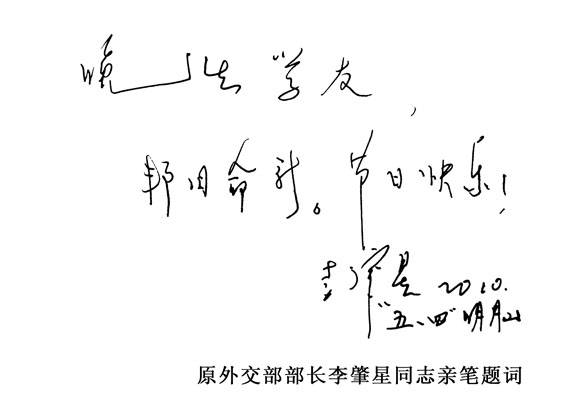 学友，
邦旧命新。节日快乐！
李肇星 2010.
“五·四”明月山
原外交部部长李肇星同志亲笔题词